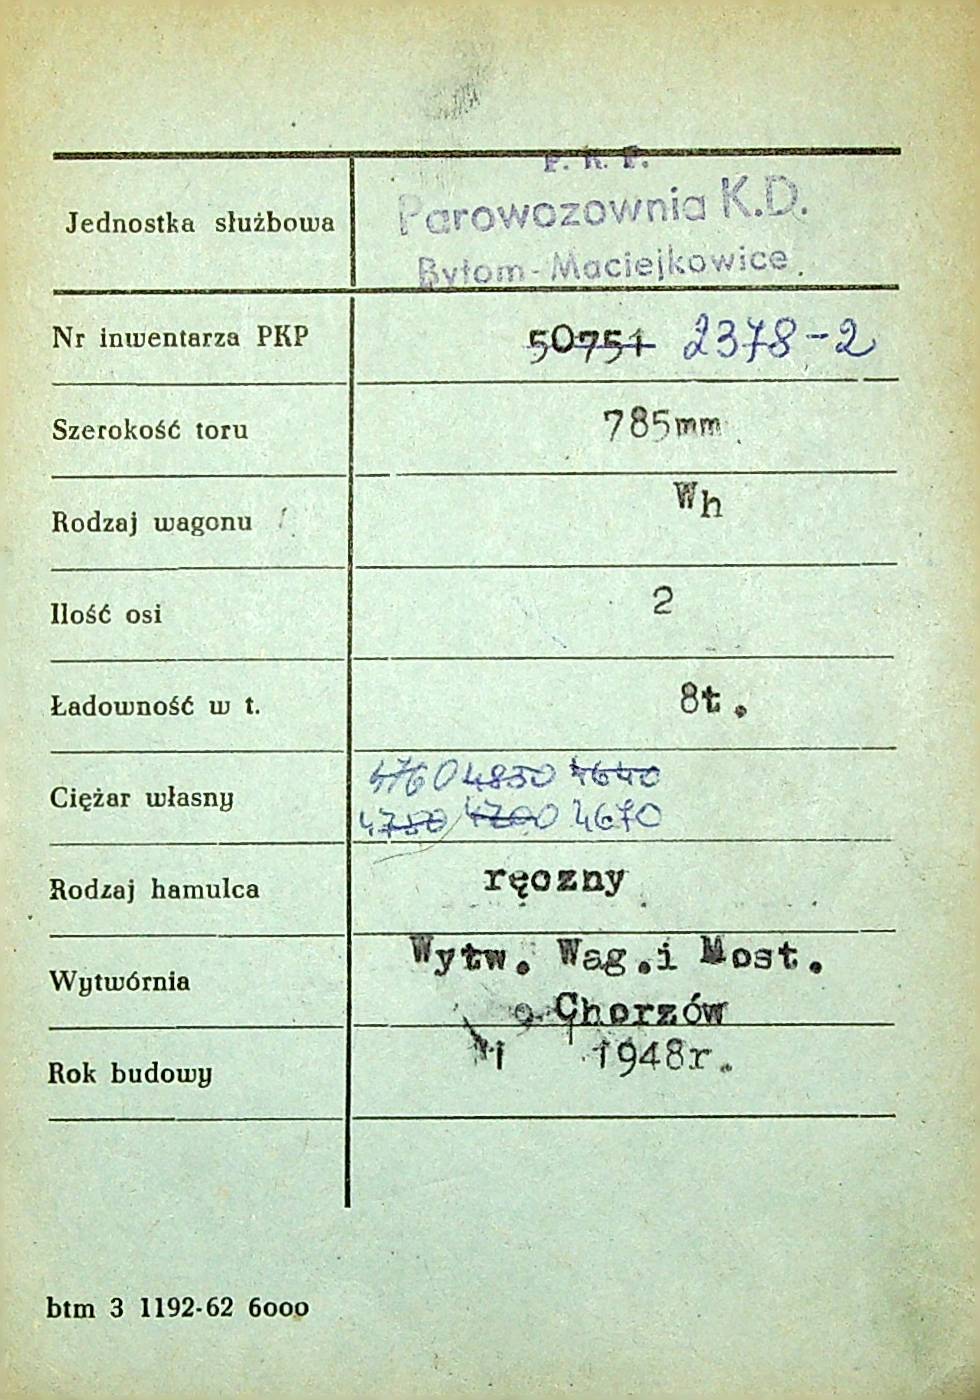 P. K. P.
Jednostka służbowa Parowozownia K.D.
Bytom-Maciejkowice.
Nr inwentarza PKP 50751 2378-2
Szerokość toru 785mm
Rodzaj wagonu Wh
Ilość osi 2
Ładowność w t. 8t.
4760 4850 4640
Ciężar własny
4750 4700 4670
Rodzaj hamulca ręczny
Wytw. Wag.i Most.
Wytwórnia
Chorzów
Rok budowy 1948r.
btm 3 1192-62 6ooo